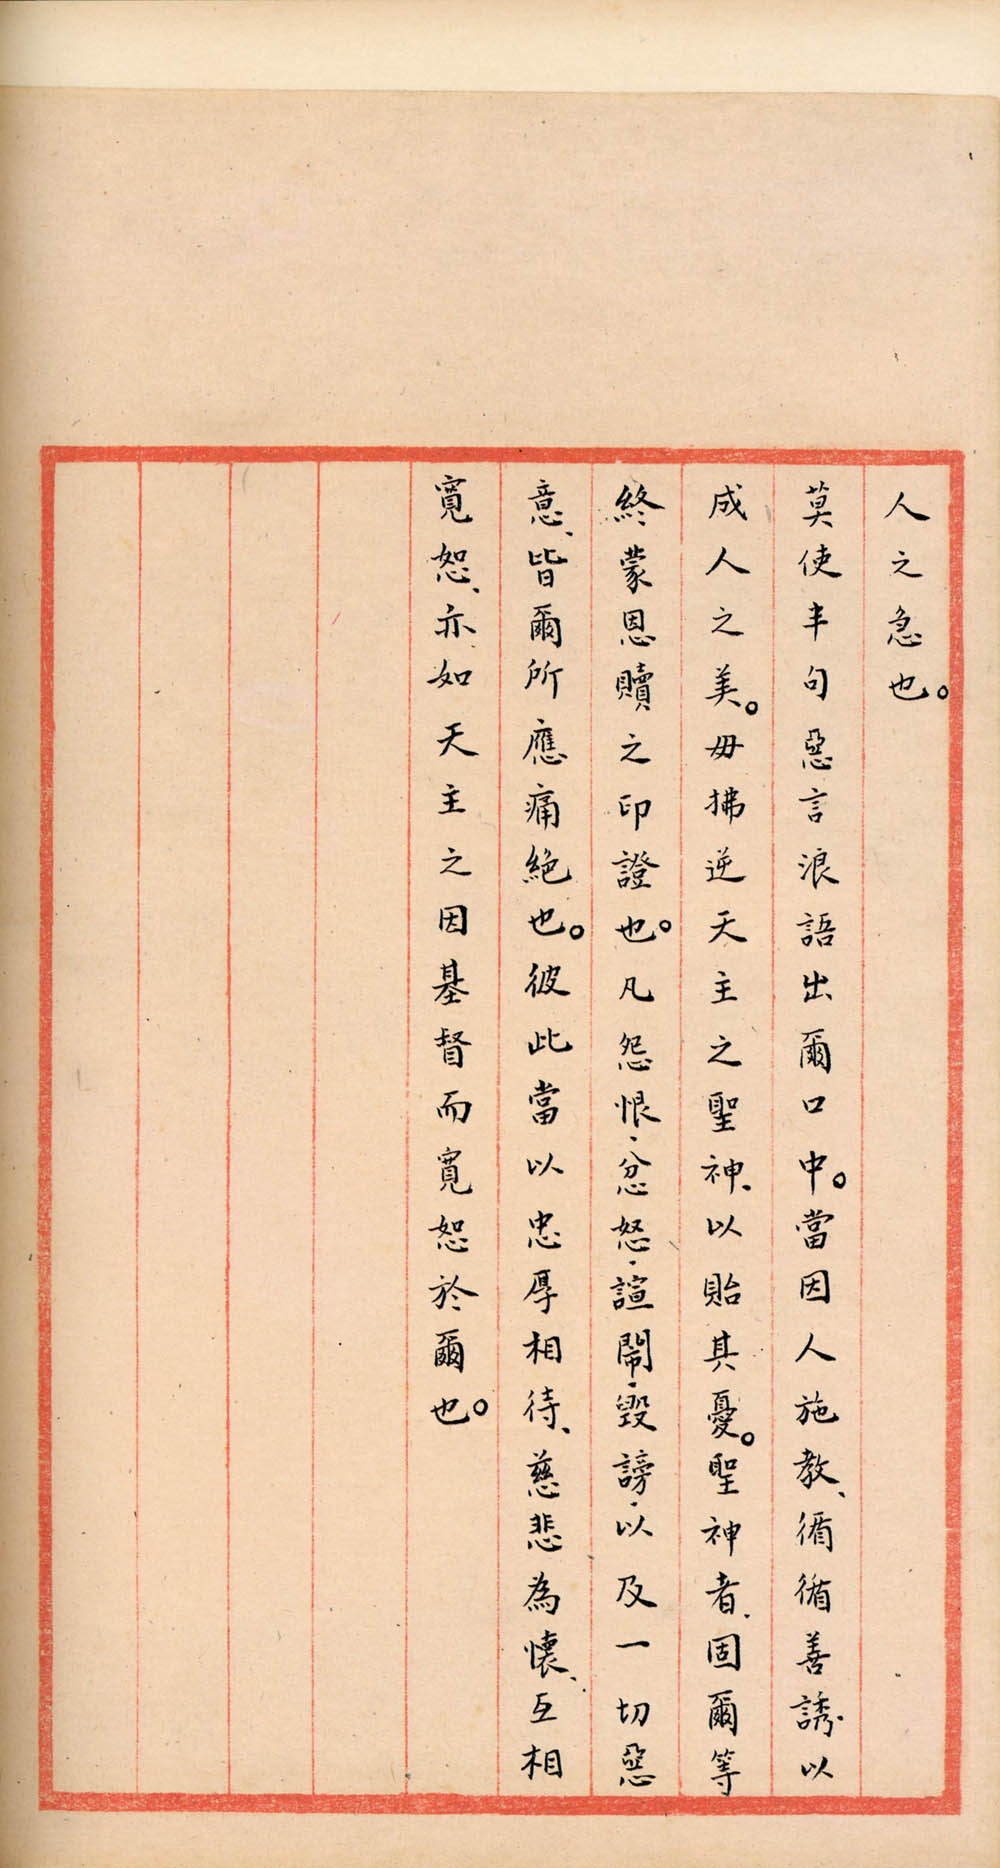 人之急也。
莫使半句惡言浪語出爾口中。當因人施教、循循善誘以
成人之美。毋拂逆天主之聖神、以貽其憂。聖神者、固爾等
終蒙恩贖之印證也。凡怨恨、忿怒、諠鬧、毀謗、以及一切惡
意、皆爾所應痛絕也。彼此當以忠厚相待、慈悲為懷、互相
寬恕、亦如天主之因基督而寬恕於爾也。